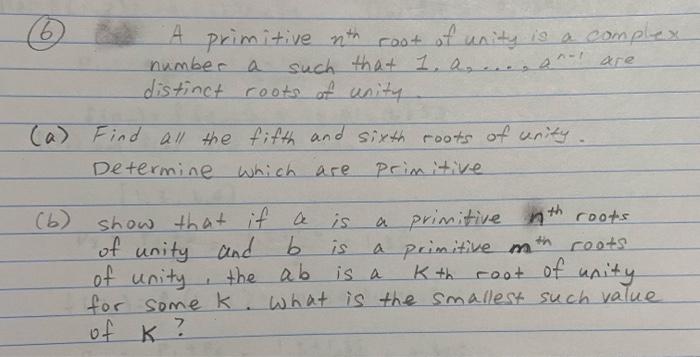 (6) A primitive nth root of unity is a complex
number a such that 1, a, ..., a^n-1 are
distinct roots of unity.
(a) Find all the fifth and sixth roots of unity.
Determine which are primitive
(b) show that if a is a primitive nth roots
of unity and b is a primitive mth roots
of unity, the ab is a Kth root of unity
for some K. What is the smallest such value
of K?